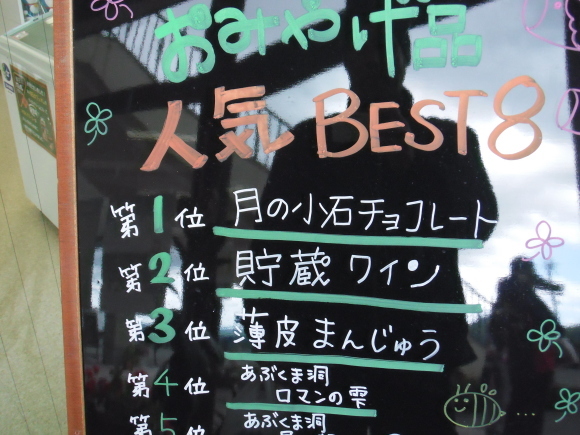 おみやげ品
人気 BEST8
第1位 月の小石チョコレート
第2位 貯蔵ワイン
第3位 薄皮まんじゅう
第4位 あぶくま洞
ロマンの雫
第5 あぶくま洞